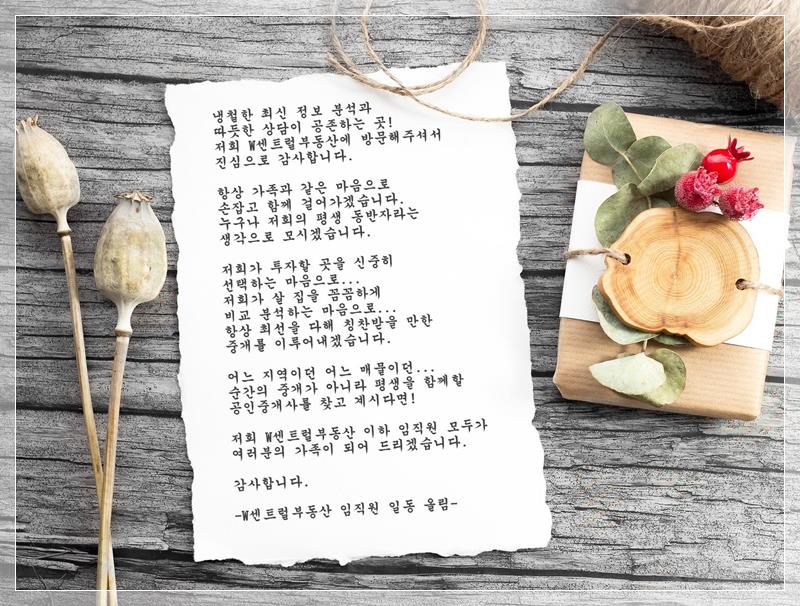 냉철한 최신 정보 분석과
따듯한 상담이 공존하는 곳!
저희 W센트럴부동산에 방문해주셔서
진심으로 감사합니다.
항상 가족과 같은 마음으로
손잡고 함께 걸어가겠습니다.
누구나 저희의 평생 동반자라는
생각으로 모시겠습니다.
저희가 투자할 곳을 신중히
선택하는 마음으로...
저희가 살 집을 꼼꼼하게
비교 분석하는 마음으로...
항상 최선을 다해 칭찬받을 만한
중개를 이루어내겠습니다.
어느 지역이던 어느 매물이던...
순간의 중개가 아니라 평생을 함께할
공인중개사를 찾고 계시다면!
저희 W센트럴부동산 이하 임직원 모두가
여러분의 가족이 되어 드리겠습니다.
감사합니다.
-W센트럴부동산 임직원 일동 올림-